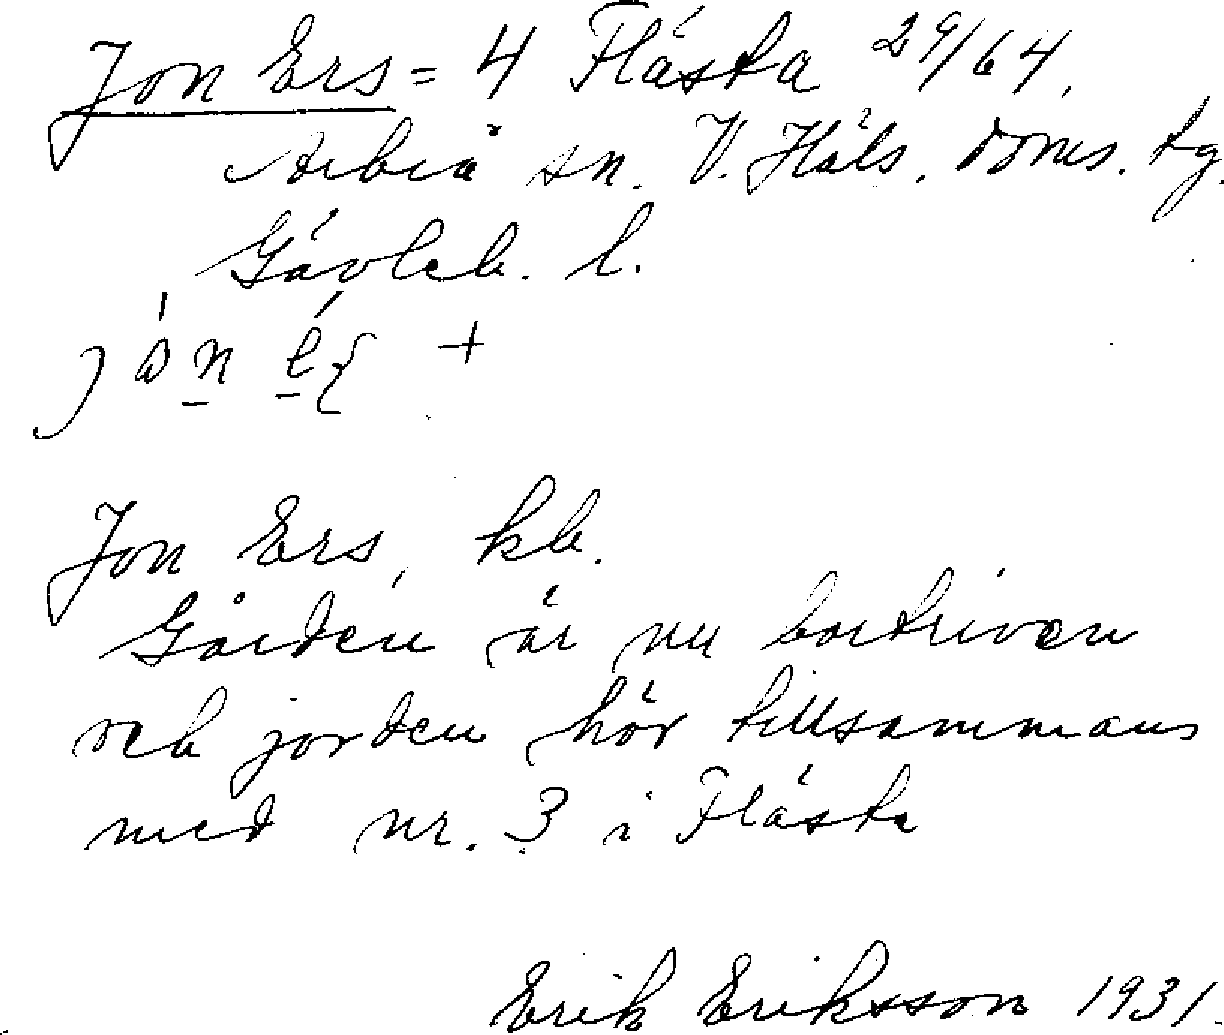 Jon Ers = 4 Flästa 29/64.
Arbrå sn. V. Häls. doms. tg.
Gävleb. l.
Jon Ers, kb.
Gården är nu bortriven
och jorden hör tillsammans
med nr. 3 i Flästa
Erik Eriksson 1931.